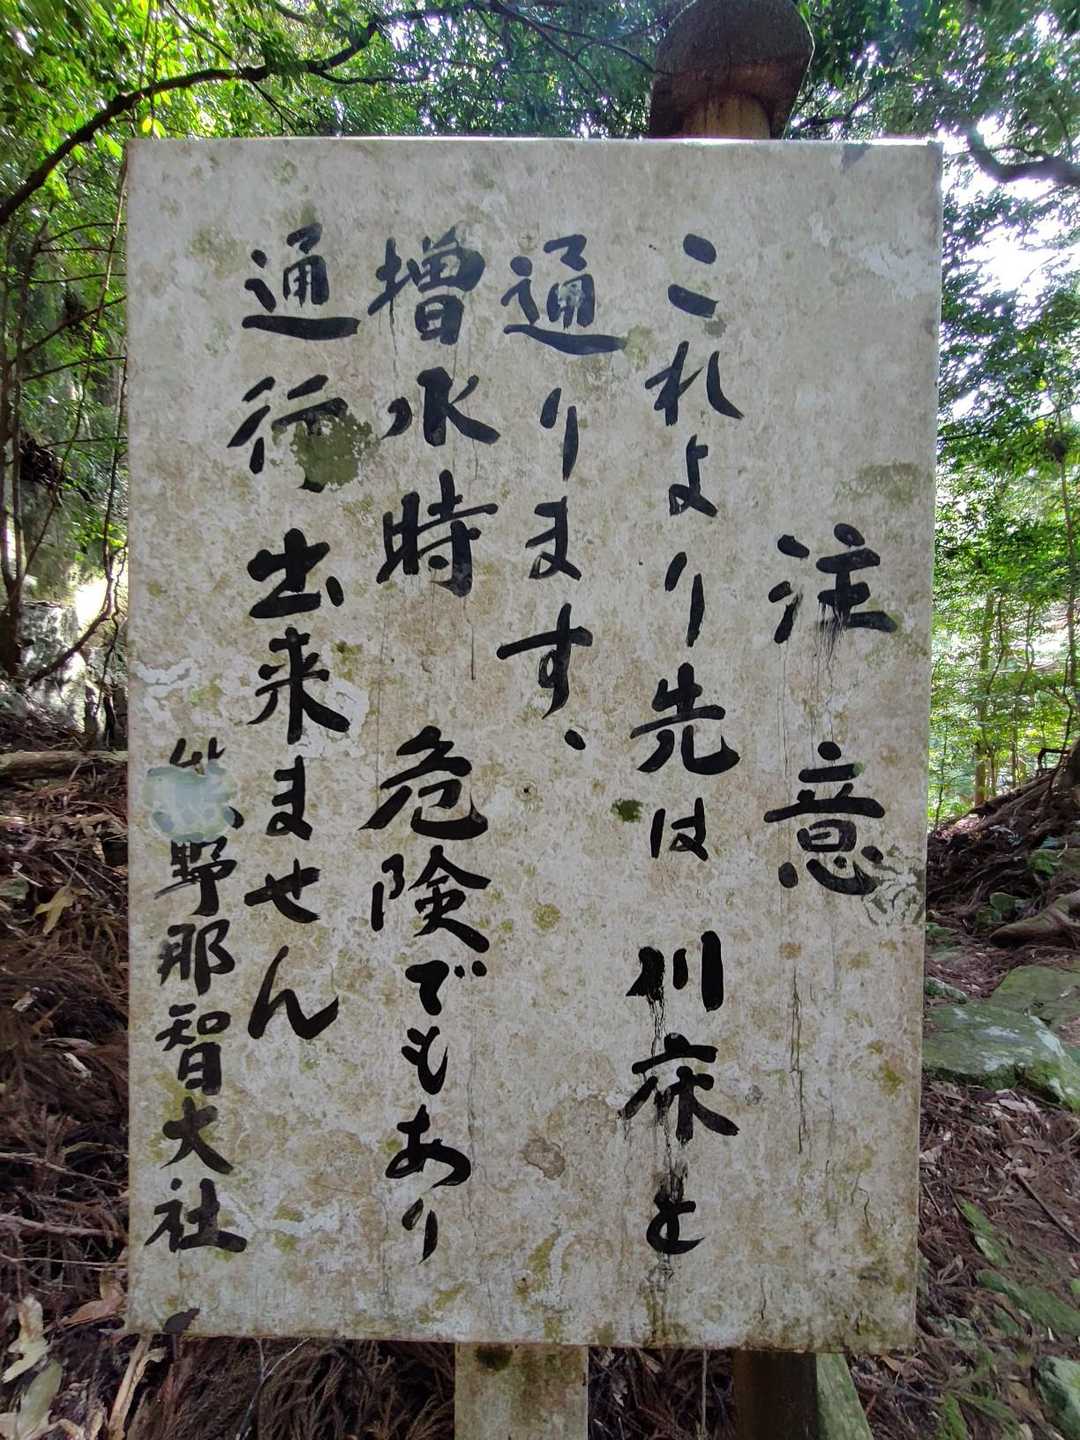 注意
これより先は川床と
通ります、
増水時危険でもあり
通行出来ません
熊野那智大社